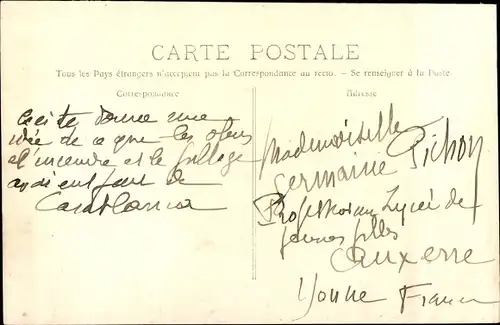 CARTE POSTALE
Tous les Pays étrangers n'acceptent pas la Correspondance au recto. – Se renseigner à la Poste
Correspondance
Ceci te donne une
idée de ce que les obus
et l'incendie et le pillage
avaient fait de
Casablanca
Adresse
Mademoiselle
Germaine Pichon
Professeur au Lycée de
jeunes filles
Auxerre
Yonne France